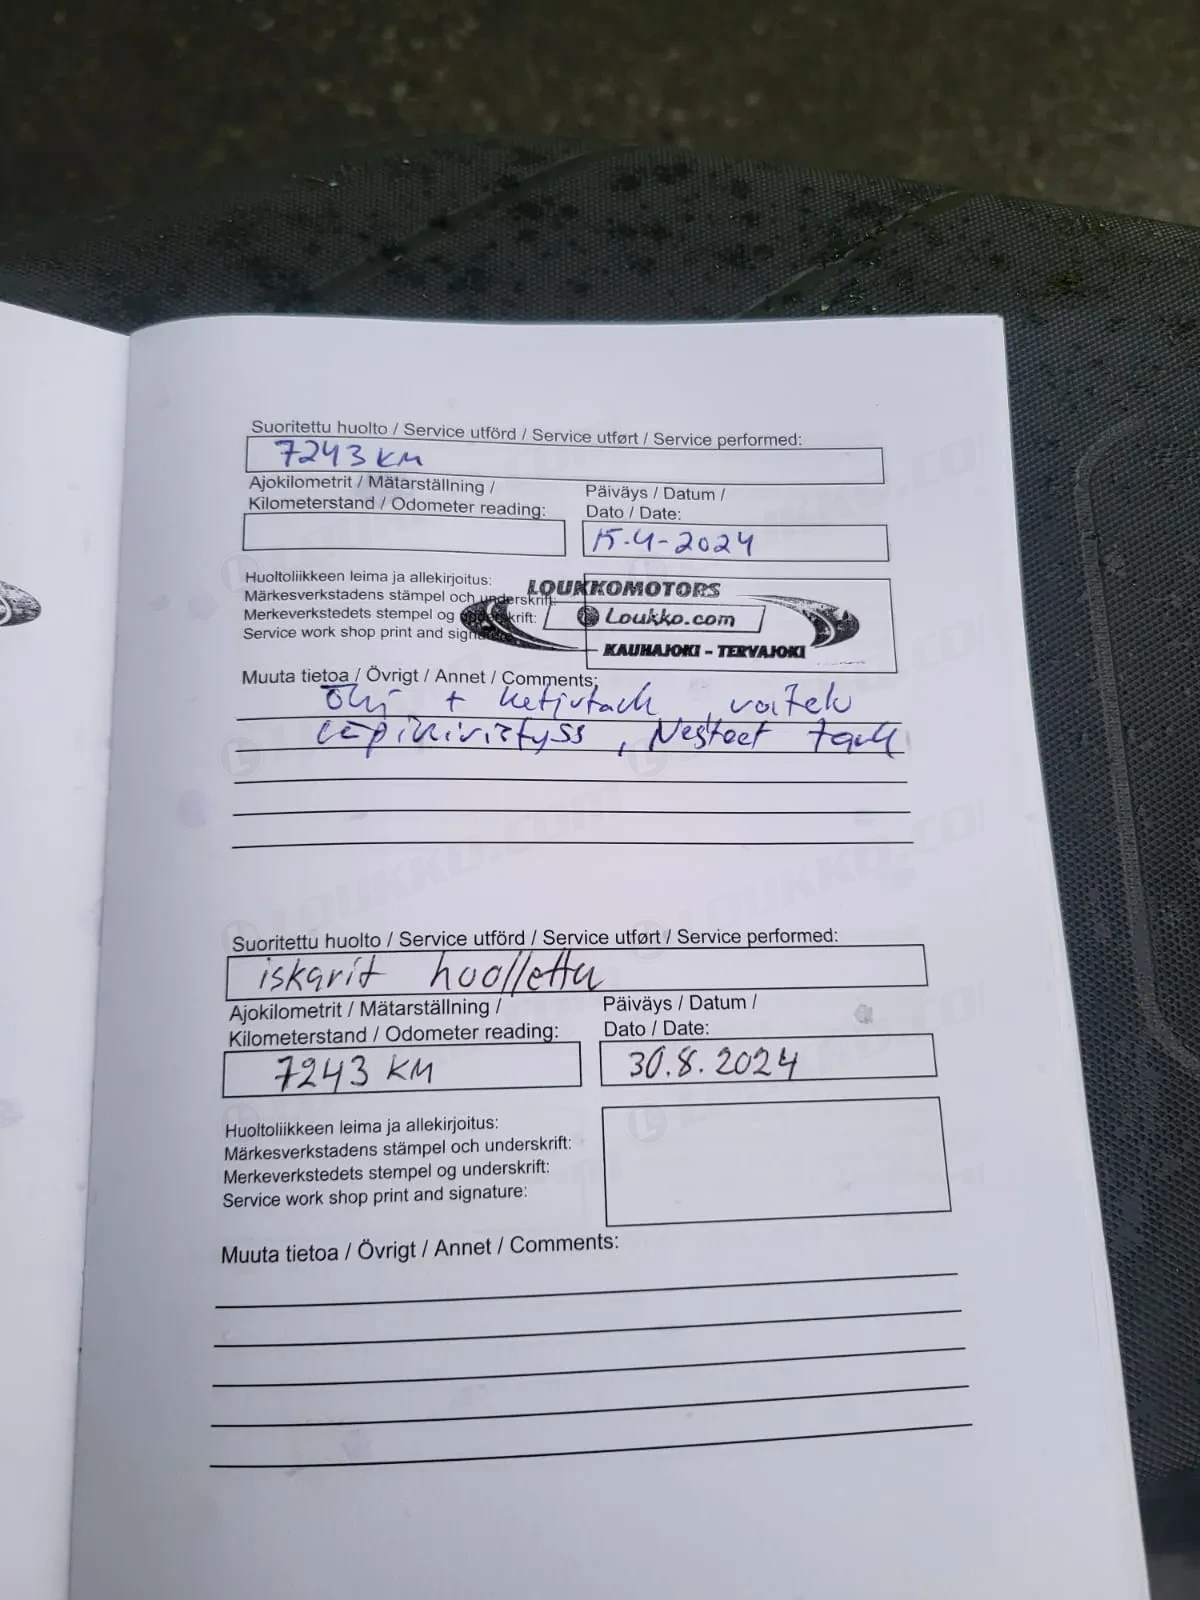 Suoritettu huolto / Service utförd / Service utført / Service performed:
7243 KM
Ajokilometrit / Mätarställning /
Kilometerstand / Odometer reading:
Päiväys / Datum /
Dato / Date:
15.4-2024
Huoltoliikkeen leima ja allekirjoitus:
Märkesverkstadens stämpel och underskrift:
Merkeverkstedets stempel og underskrift:
Service work shop print and signature:
LOUKKOMOTORS
Loukko.com
KAUHAJOKI - TERVAJOKI
Muuta tietoa / Övrigt / Annet / Comments:
+ voitelu
, Nesteet
Suoritettu huolto / Service utförd / Service utført / Service performed:
iskarit huollettu
Ajokilometrit / Mätarställning /
Kilometerstand / Odometer reading:
7243 KM
Päiväys / Datum /
Dato / Date:
30.8.2024
Huoltoliikkeen leima ja allekirjoitus:
Märkesverkstadens stämpel och underskrift:
Merkeverkstedets stempel og underskrift:
Service work shop print and signature:
Muuta tietoa / Övrigt / Annet / Comments: